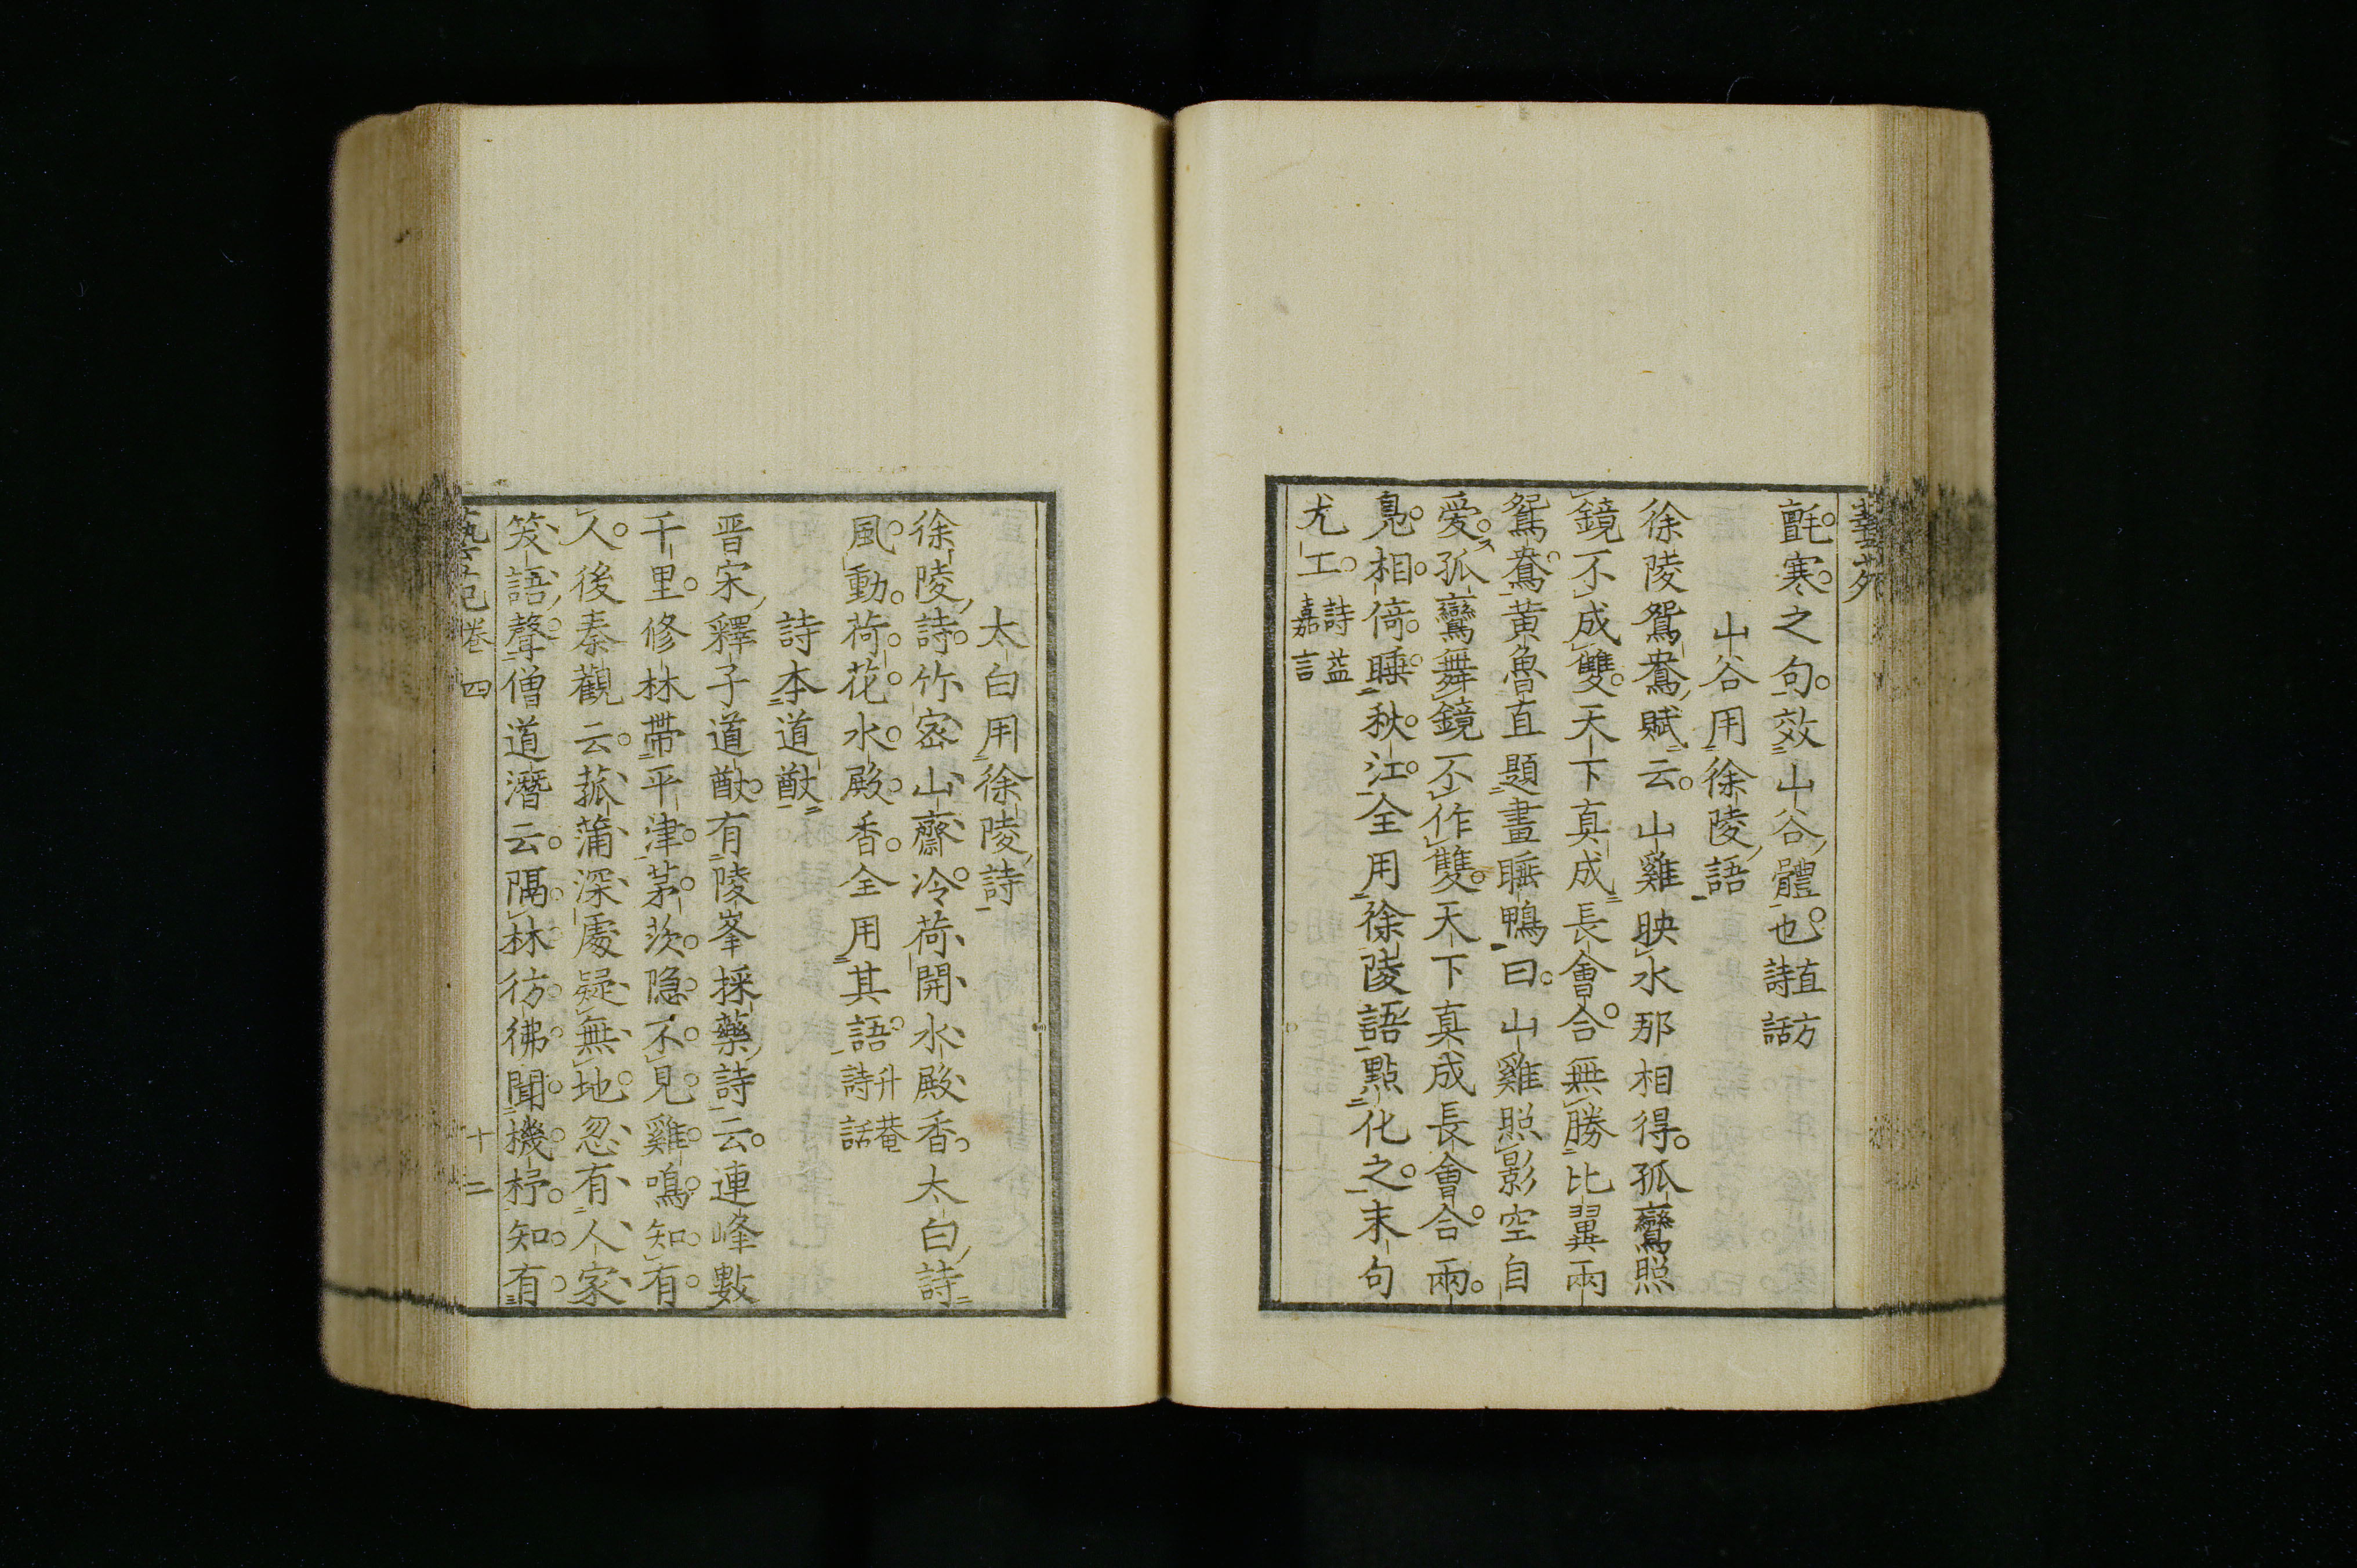 藝苑
氈寒之句效山谷體也直方詩話
山谷用徐陵語
徐陵鴛鴦賦云山雞映水那相得孤鸞照
鏡不成雙天下真成長會合無勝比翼兩
鴛鴦黄魯直題畫睡鴨曰山雞照影空自
愛孤鸞舞鏡不作雙天下真成長會合兩
鳧相倚睡秋江全用徐陵語點化之末句
尤工詩益嘉言
太白用徐陵詩
徐陵詩竹密山齋冷荷開水殿香太白詩
風動荷花水殿香全用其語升菴詩話
詩本道猷
晋宋釋子道猷有陵峯採藥詩云連峰數
千里修林帶平津茅茨隐不見雞鳴知有
人後秦觀云菰蒲深處疑無地忽有人家
笑語聲僧道潛云隔林彷彿聞機杼知有
藝苑卷四 十二